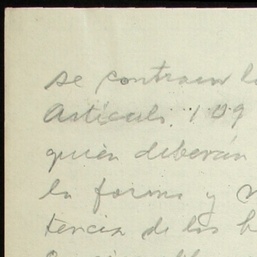 se contraen l
Artículo 109
quien deberán
la forma y
tencia de los